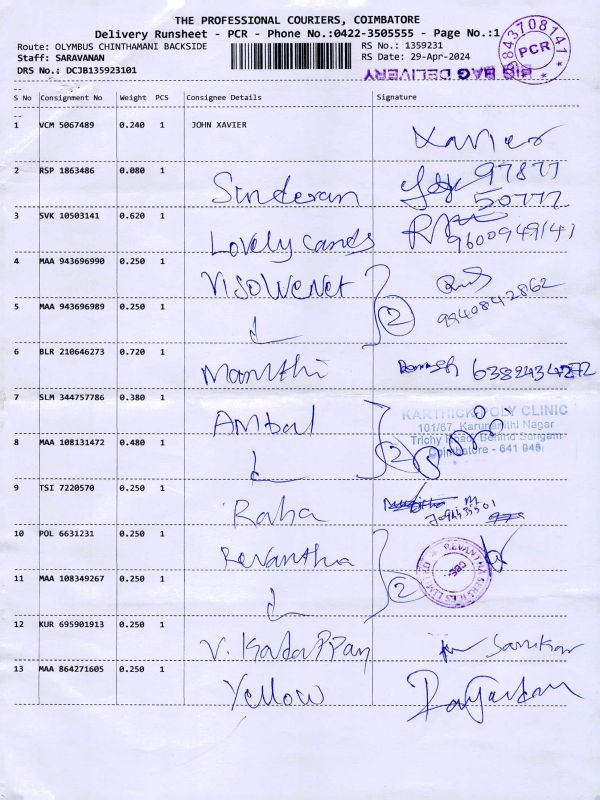 THE PROFESSIONAL COURIERS, COIMBATORE
Delivery Runsheet - PCR - Phone No.:0422-3505555 - Page No.:1
Route: OLYMBUS CHINTHAMANI BACKSIDE
RS No.: 1359231
Staff: SARAVANAN
RS Date: 29-Apr-2024
DRS No.: DCJB135923101
BIG BAG DELIVERY
9843708141
PCR
S No Consignment No Weight PCS Consignee Details Signature
1 VCM 5067489 0.240 1 JOHN XAVIER Xavier
2 RSP 1863486 0.080 1 Sinderan 97877
50777
3 SVK 10503141 0.620 1 Lovely cands 9600949141
4 MAA 943696990 0.250 1 VISolveNet 2
5 MAA 943696989 0.250 1 9940842862
6 BLR 210646273 0.720 1 Maruthi
7 SLM 344757786 0.380 1 Ambal 2
KARTHICK POLY CLINIC
101/67, Karunanithi Nagar
8 MAA 108131472 0.480 1 Trichy Road, Behind Sungam
Coimbatore - 641 045
9 TSI 7220570 0.250 1 Raha
10 POL 6631231 0.250 1 Revantha 2
11 MAA 108349267 0.250 1
12 KUR 695901913 0.250 1 V. Kadappan
13 MAA 864271605 0.250 1 Yellow